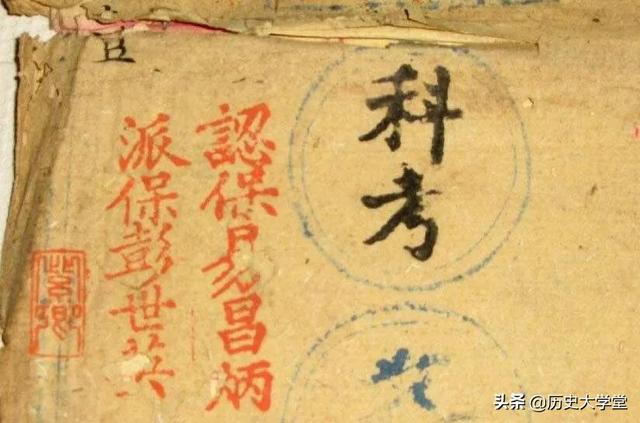 科考
認保易昌炳
派保彭世英
头条 @历史大学堂